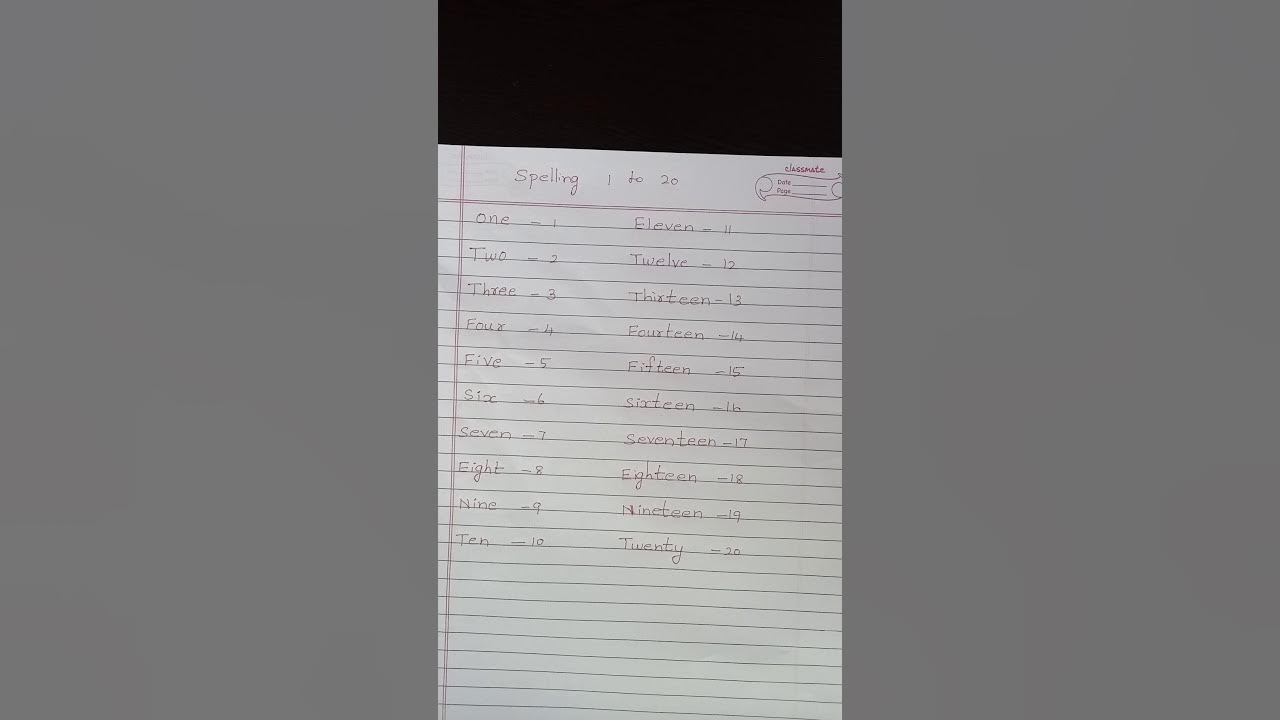 classmate
Date
Page
Spelling 1 to 20
One - 1 Eleven - 11
Two - 2 Twelve - 12
Three - 3 Thirteen - 13
Four - 4 Fourteen - 14
Five - 5 Fifteen - 15
Six - 6 Sixteen - 16
Seven - 7 Seventeen - 17
Eight - 8 Eighteen - 18
Nine - 9 Nineteen - 19
Ten - 10 Twenty - 20